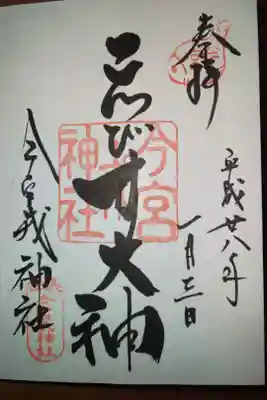 奉拝
平成廿八年
一月三日
ゑびす大神
今宮
神社
今宮戎神社